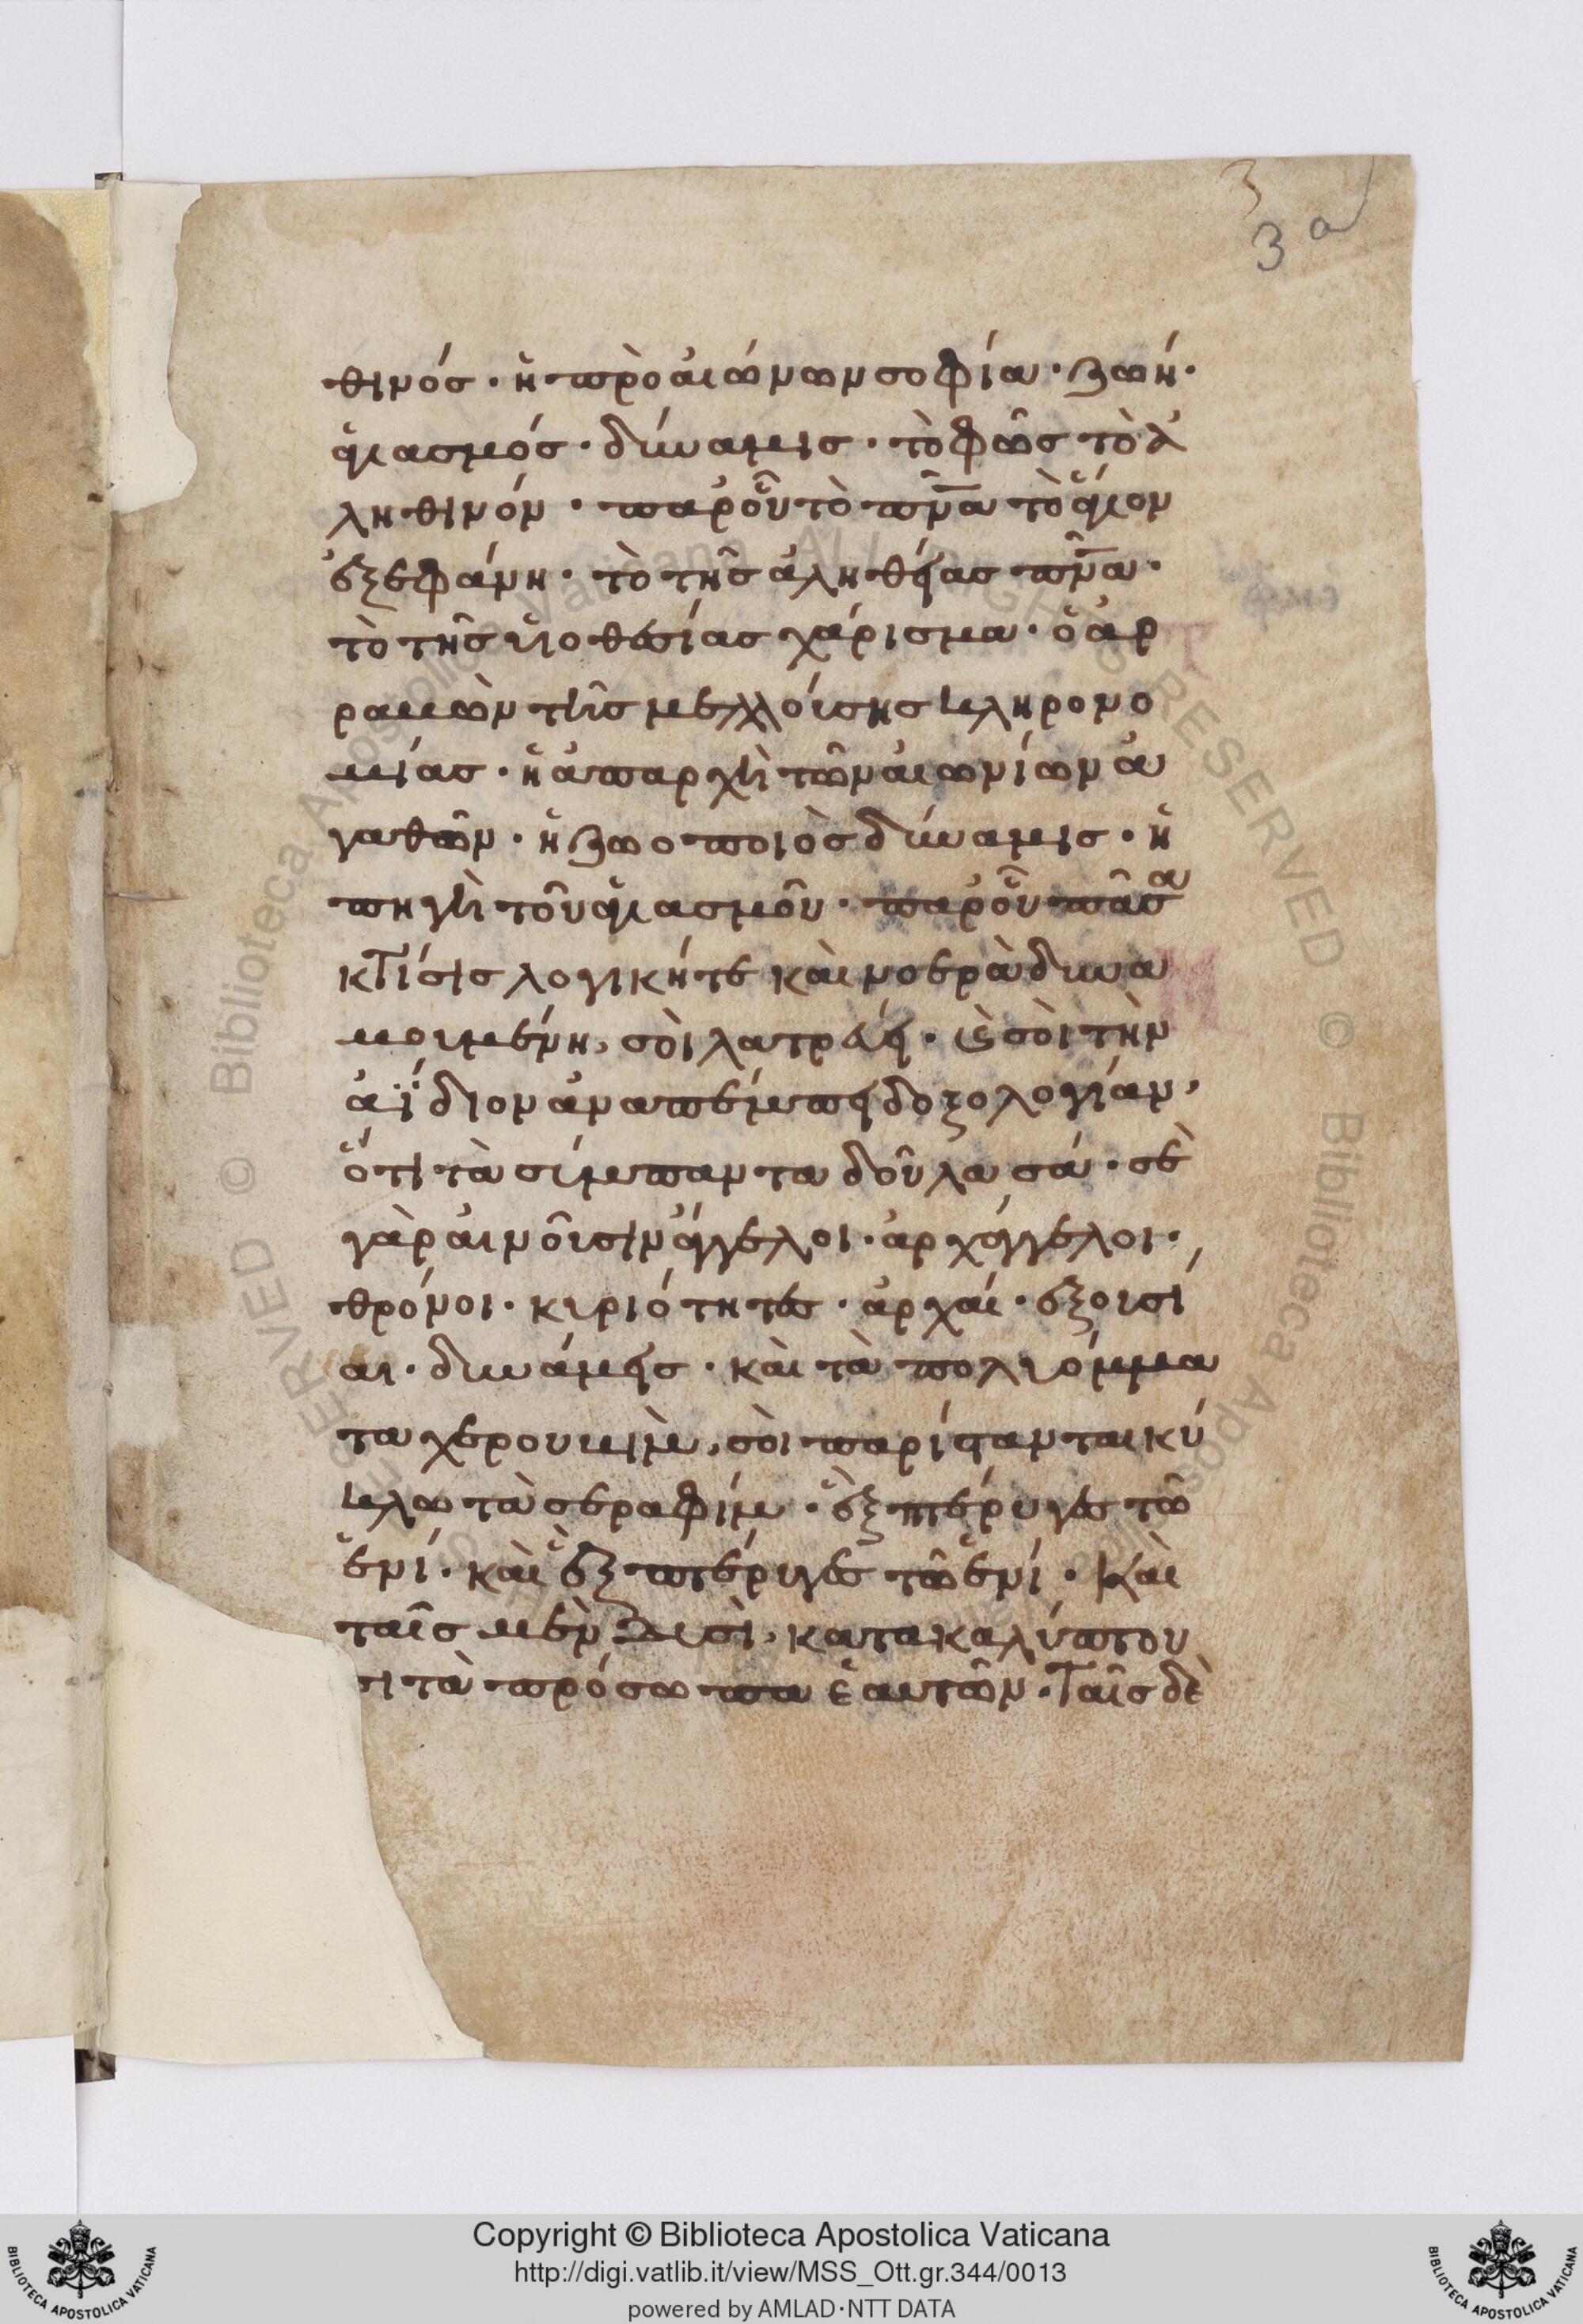 3
3a
θινός · ἡ πρὸ αἰώνων σοφία · ζωή ·
ἁγιασμός · δύναμις · τὸ φῶς τὸ ἀ
ληθινόν · παρ' οὗ τὸ πν̅α τὸ ἅγιον
ἐξεφάνη · τὸ τῆς ἀληθείας πν̅α ·
τὸ τῆς υἱοθεσίας χάρισμα · ὁ ἀρ
ραβὼν τῆς μελλούσης κληρονο
μίας · ἡ ἀπαρχὴ τῶν αἰωνίων ἀ
γαθῶν · ἡ ζωοποιὸς δύναμις · ἡ
πηγὴ τοῦ ἁγιασμοῦ · παρ' οὗ πᾶσα
κτίσις λογική τε καὶ νοερὰ δυνα
μουμένη, σοὶ λατρεύει · καὶ σοὶ τὴν
ἀΐδιον ἀναπέμπει δοξολογίαν,
ὅτι τὰ σύμπαντα δοῦλα σά · σὲ
γὰρ αἰνοῦσιν ἄγγελοι · ἀρχάγγελοι ·
θρόνοι · κυριότητες · ἀρχαί · ἐξουσί
αι · δυνάμεις · καὶ τὰ πολυόμμα
τα χερουβιμ, σοὶ παρίστανται κύ
κλω τὰ σεραφίμ · ἓξ πτέρυγες τῶ
ἑνί · καὶ ἓξ πτέρυγες τῶ ἑνί · Καὶ
ταῖς μὲν δυσὶ, κατακαλύπτου
σι τὰ πρόσωπα ἑαυτῶν · Ταῖς δὲ
Copyright © Biblioteca Apostolica Vaticana
http://digi.vatlib.it/view/MSS_Ott.gr.344/0013
powered by AMLAD·NTT DATA